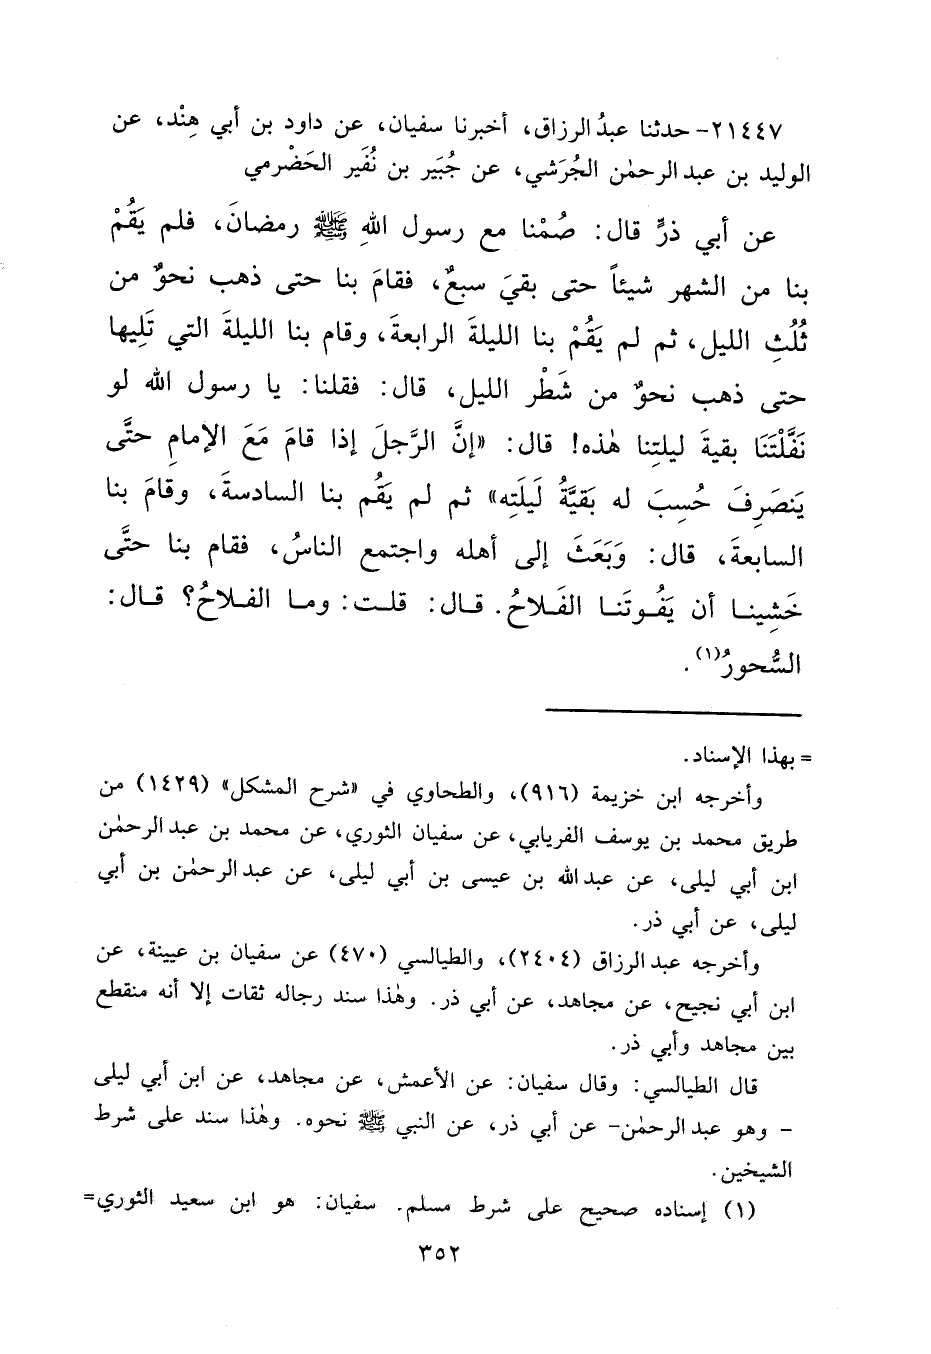 ٢١٤٤٧- حدثنا عبدُ الرزاق، أخبرنا سفيان، عن داود بن أبي هِنْد، عن
الوليد بن عبد الرحمٰن الجُرَشي، عن جُبَير بن نُفَير الحَضْرمي
عن أبي ذرٍّ قال: صُمْنا مع رسول اللهِ ﷺ رمضانَ، فلم يَقُمْ
بنا من الشهر شيئاً حتى بقيَ سبعٌ، فقامَ بنا حتى ذهب نحوٌ من
ثُلُثِ الليل، ثم لم يَقُمْ بنا الليلةَ الرابعةَ، وقام بنا الليلةَ التي تَلِيها
حتى ذهب نحوٌ من شَطْر الليل، قال: فقلنا: يا رسول الله لو
نَفَّلْتَنَا بقيةَ ليلتِنا هٰذه! قال: «إنَّ الرَّجلَ إذا قامَ مَعَ الإمامِ حتَّى
يَنصَرِفَ حُسِبَ له بَقيَّةُ لَيلَتِه» ثم لم يَقُم بنا السادسةَ، وقامَ بنا
السابعةَ، قال: وَبَعَثَ إلى أهله واجتمع الناسُ، فقام بنا حتَّى
خَشِينا أن يَفُوتَنا الفَلاحُ. قال: قلت: وما الفلاحُ؟ قال:
السُّحورُ(١).
= بهذا الإسناد.
وأخرجه ابن خزيمة (٩١٦)، والطحاوي في «شرح المشكل» (١٤٢٩) من
طريق محمد بن يوسف الفريابي، عن سفيان الثوري، عن محمد بن عبد الرحمٰن
ابن أبي ليلى، عن عبد الله بن عيسى بن أبي ليلى، عن عبد الرحمٰن بن أبي
ليلى، عن أبي ذر.
وأخرجه عبد الرزاق (٢٤٠٤)، والطيالسي (٤٧٠) عن سفيان بن عيينة، عن
ابن أبي نجيح، عن مجاهد، عن أبي ذر. وهٰذا سند رجاله ثقات إلا أنه منقطع
بين مجاهد وأبي ذر.
قال الطيالسي: وقال سفيان: عن الأعمش، عن مجاهد، عن ابن أبي ليلى
- وهو عبد الرحمٰن- عن أبي ذر، عن النبي ﷺ نحوه. وهٰذا سند على شرط
الشيخين.
(١) إسناده صحيح على شرط مسلم. سفيان: هو ابن سعيد الثوري=
٣٥٢